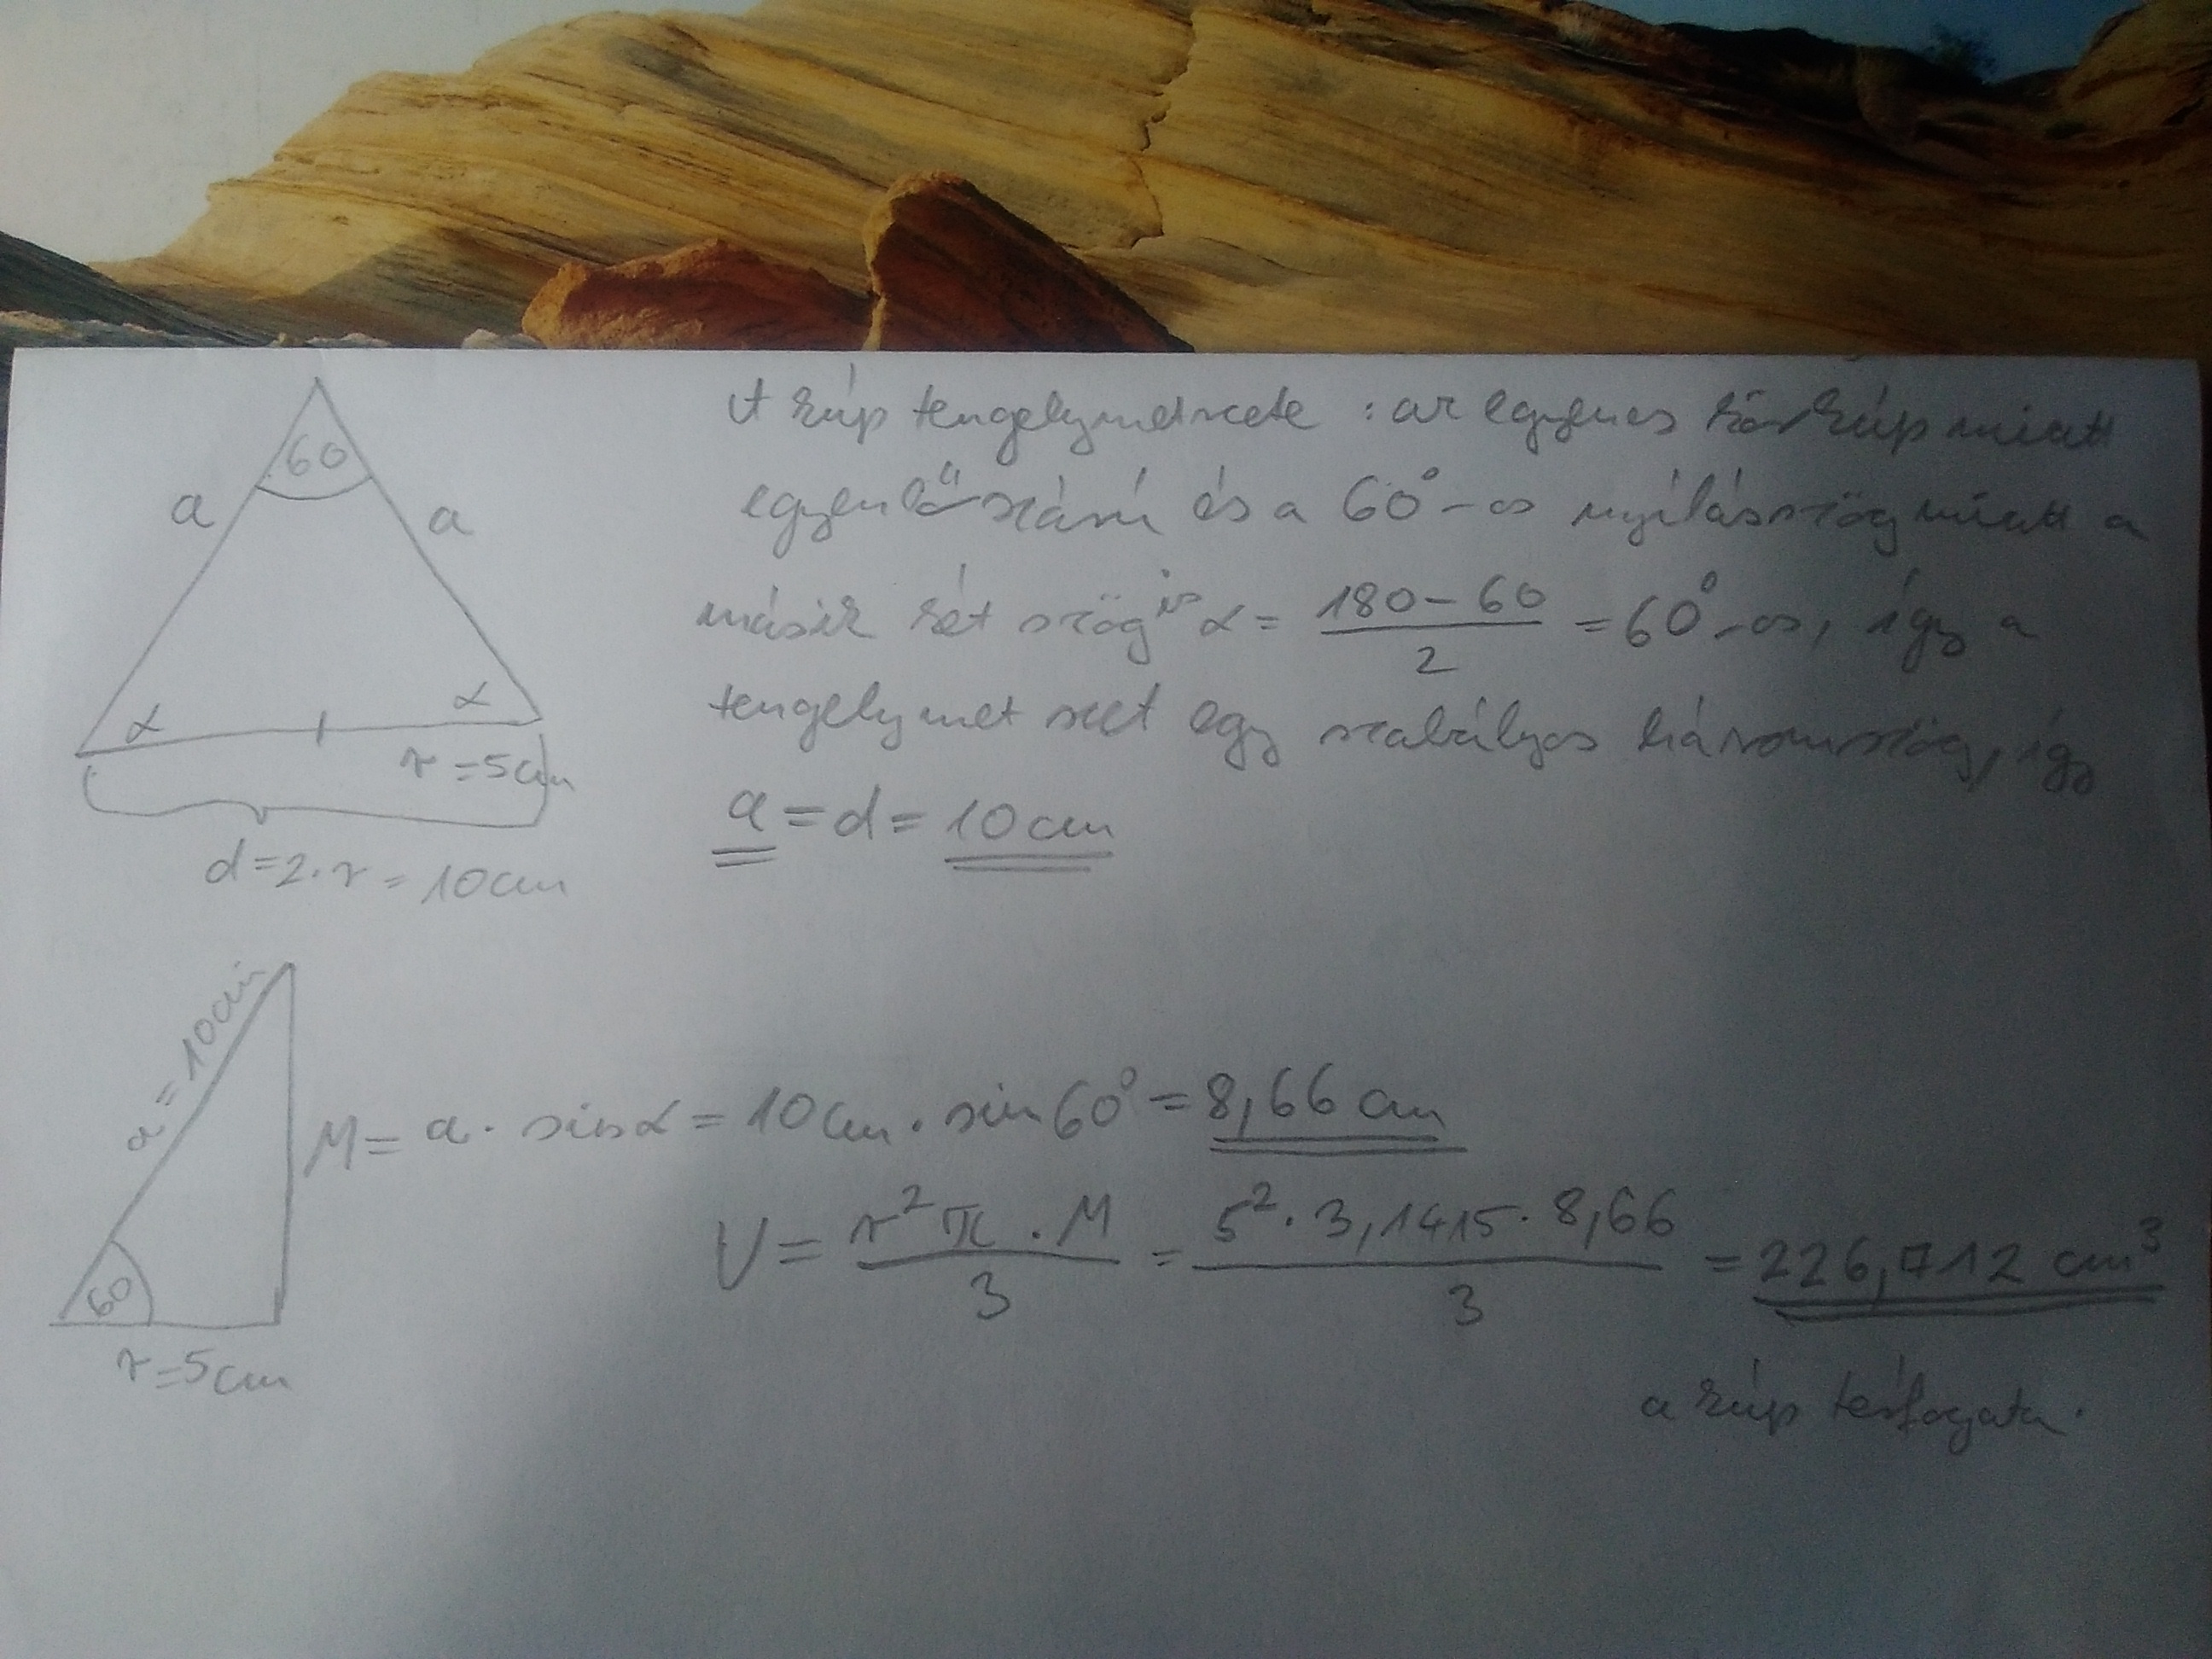 60
a
a
α
α
r = 5 cm
d = 2 · r = 10 cm
A kúp tengelymetszete : az egyenes körkúp miatt
egyenlő szárú és a 60°-os nyílásszög miatt a
másik két szög is α = (180 - 60)/2 = 60°-os, így a
tengelymetszet egy szabályos háromszög, így
a = d = 10 cm
a = 10 cm
60
r = 5 cm
M = a · sin α = 10 cm · sin 60° = 8,66 cm
V = (r² π · M)/3 = (5² · 3,1415 · 8,66)/3 = 226,712 cm³
a kúp térfogata.